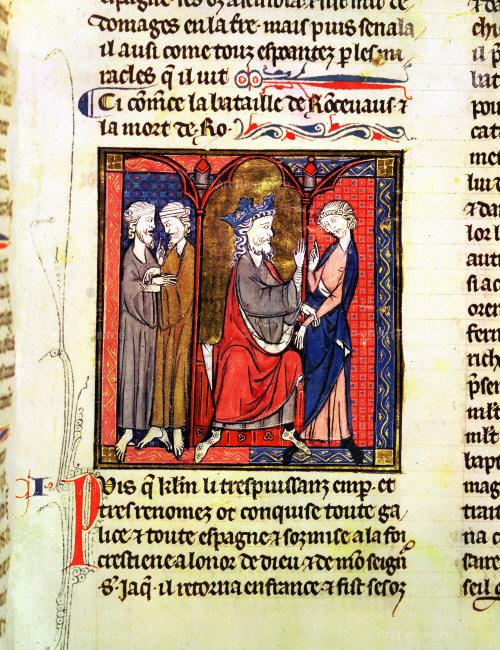 domages en la tre · mais puis senala
il ausi come touz espoantez p les mi
racles q il uit
Ci com̃ce la bataille de Rõceuaus ⁊
la mort de Ro ·
Puis q̃ klm̃ li trespuissanz emp · et
tresrenomez ot conquise toute ga
lice ⁊ toute espagne ⁊ sozmise a la foi
crestiene a lonor de dieu ⁊ de mo seign̄
S · Jaq̃ · il retorna en france ⁊ fist ses oz
il p
bat
pou
cat
met
⁊ dar
lor l
aut
si ac
oren
fern
rich
p̃sen
mlt
mlt
bapt
mag
tran
na c
sare
seil q